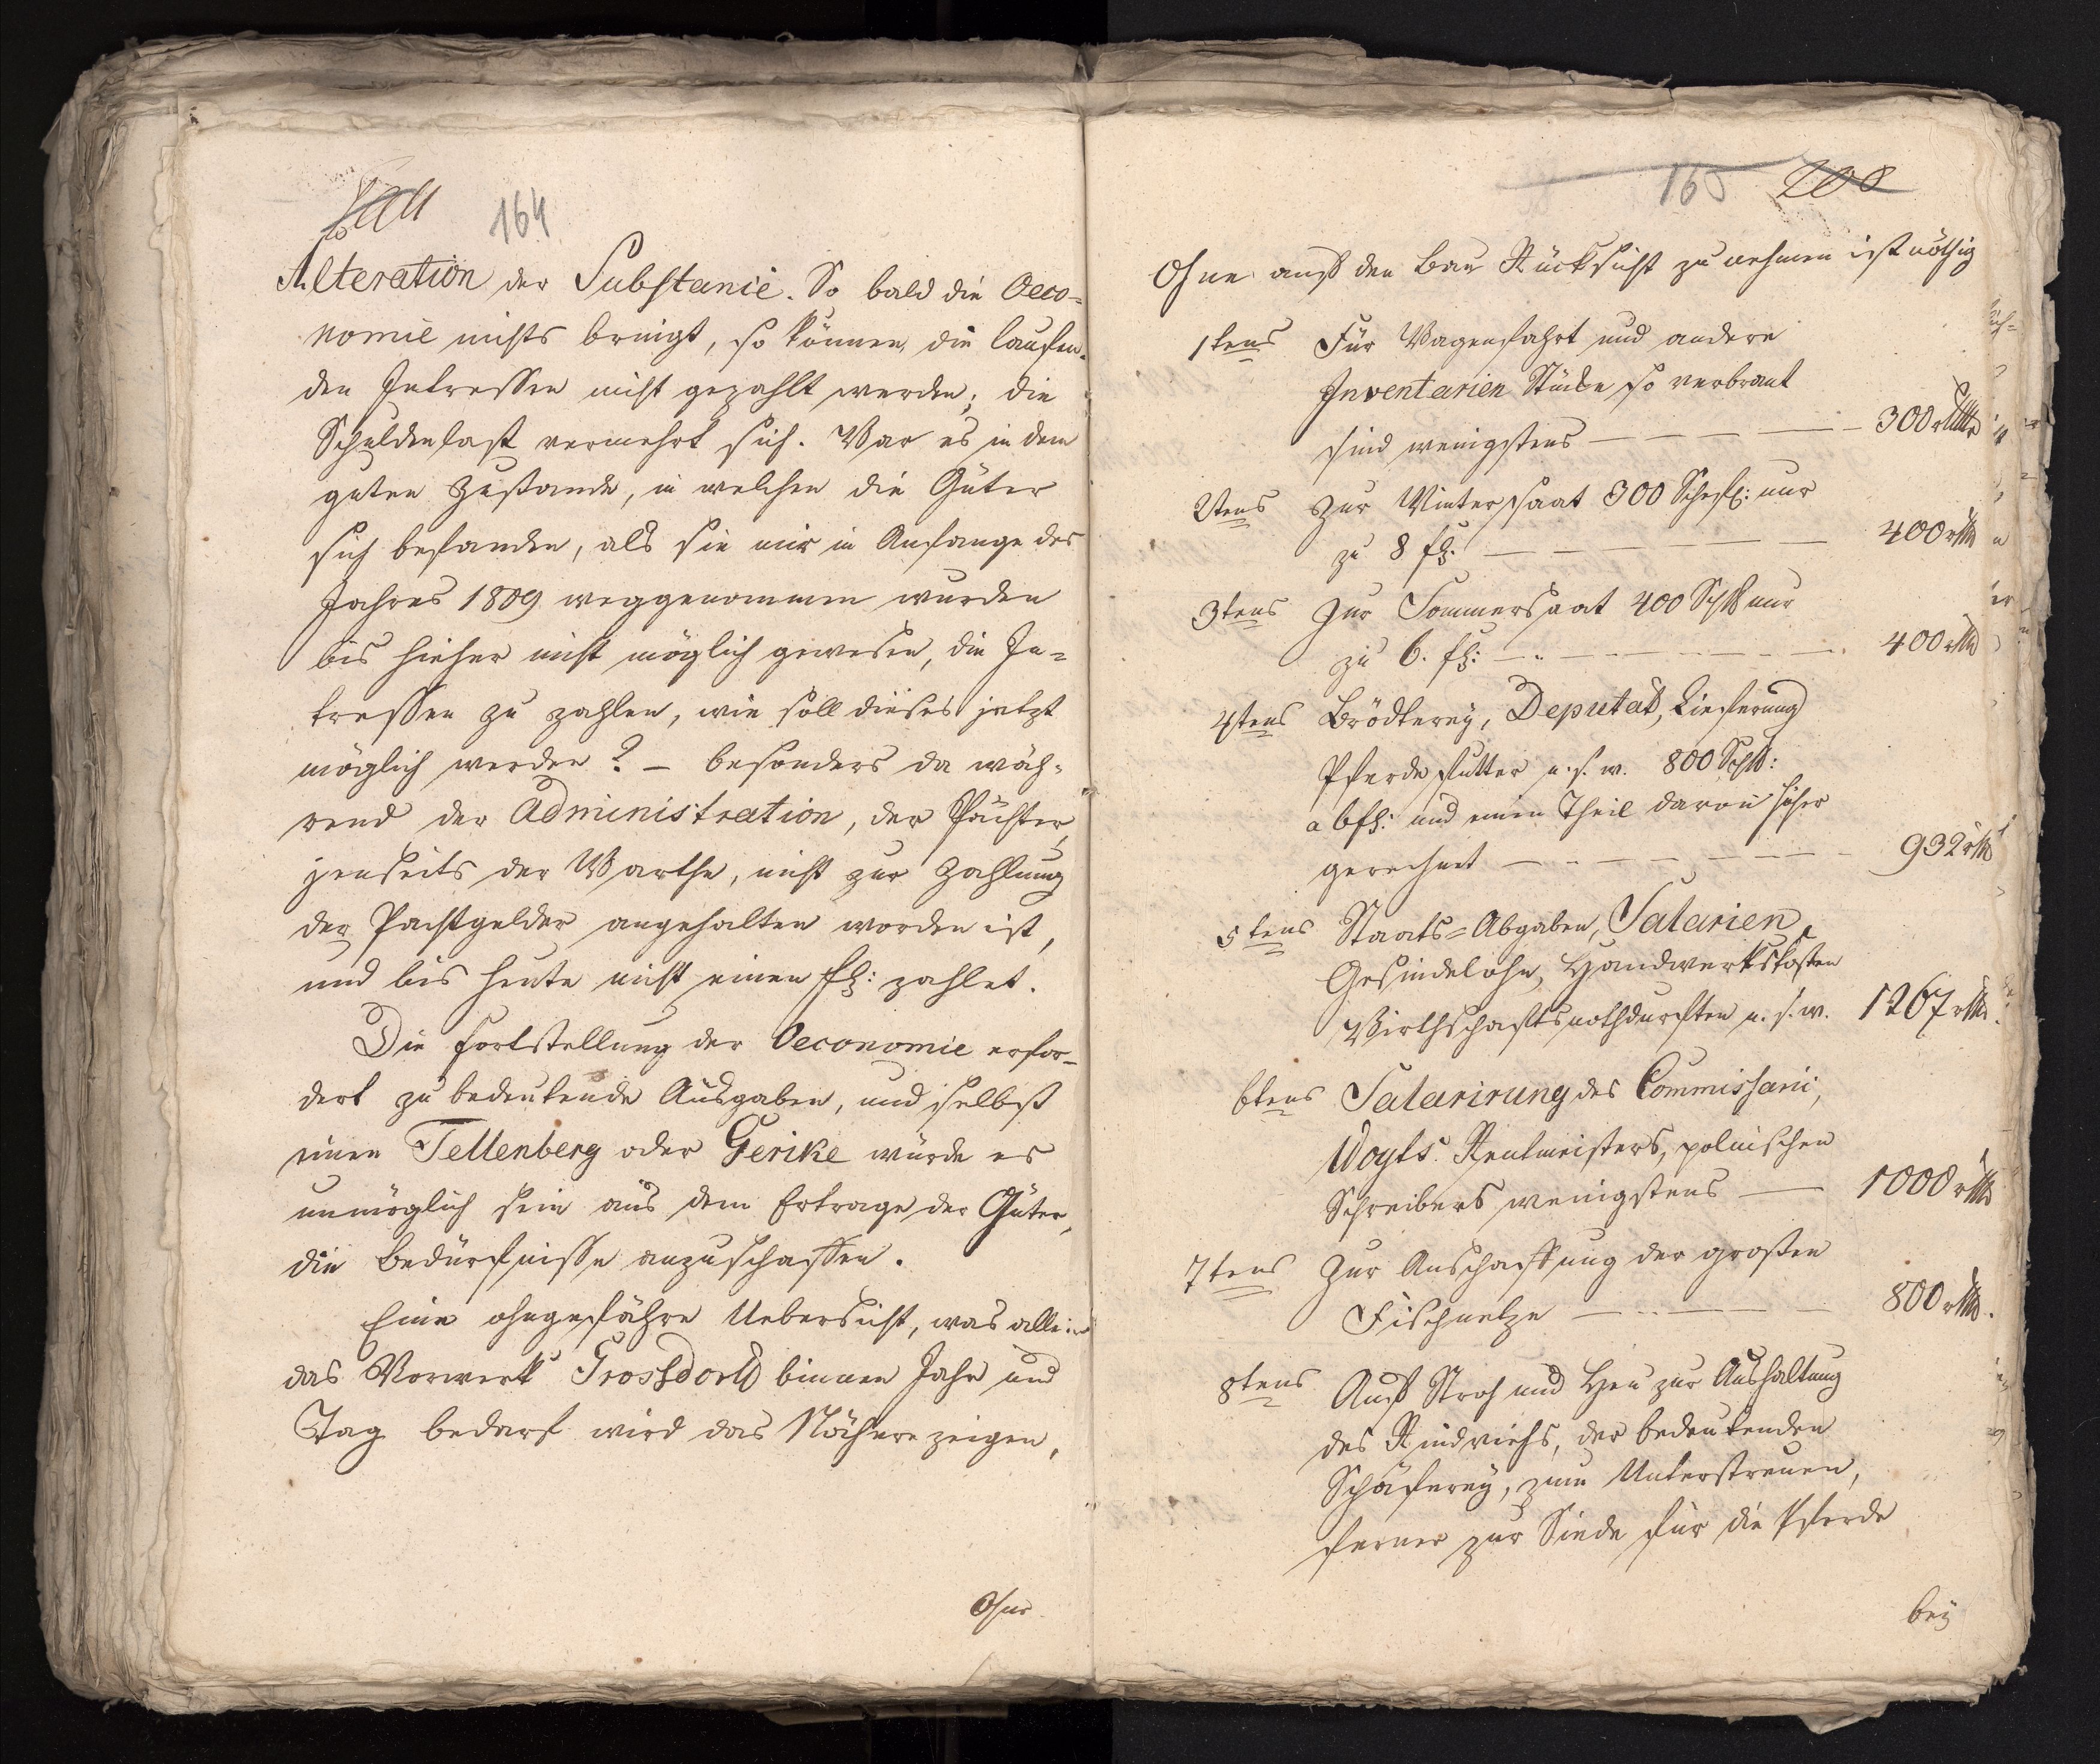 164
Alteration der Substanie. So bald die Oeco-
nomie nichts bringt, so können, die laufen-
den Intressen nicht gezahlt werden; die
Schuldenlast vermehrt sich. War es in dem
guten Zustande, in welchen die Güter
sich befanden, als sie mir in Anfange des
Jahres 1809 weggenommen wurden
bis hieher nicht möglich gewesen, die In=
tressen zu zahlen, wie soll dieses jetzt
möglich werden? – besonders da wäh-
rend der Administration, der Pächter,
jenseits der Warthe, nicht zur Zahlung
der Pachtgelder angehalten worden ist,
und bis heute nicht einen fl: zahlet.
Die Fortstellung der Oeconomie erfor-
dert zu bedeutende Ausgaben, und selbst
einen Tellenberg oder Gerike würde es
unmöglich sein aus dem Ertrage der Güter,
die Bedürfnisse anzuschaffen.
Eine ohngefähre Uebersicht, was allein
das Vorwerk Grossdorff binnen Jahr und
Tag bedarf wird das Nähere zeigen,
Ohne
165 200
Ohne auf den Bau Rücksicht zu nehmen ist nöthig
1tens Für Wagenfahrt und andere
Inventarien Stücke so verbrant
sind wenigstens — — — — — 300 rthlr
2tens Zur Wintersaat 300 Scheffl: nur
zu 8 fl: — — — — — 400 rthlr
3tens Zur Sommersaat 400 Schfl nur
zu 6. fl: — — — — — 400 rthlr
4tens Brödterey, Deputat, Lieferung
Pferdefutter u. s. w. 800 Schfl:
a 6 fl: und einen Theil davon höher
gerechnet — — — — — 932 rthlr
5tens Staats=Abgaben, Salarien,
Gesindelohn, Handwerkskosten
Wirthschaftsnothdurften u. s. w. 1267 rthlr.
6tens Salarirung des Commissarii,
Vogts. Rentmeisters, polnischen
Schreibers wenigstens — 1000 rthlr
7tens Zur Anschaffung der großen
Fischnetze — — — — 800 rthlr.
8tens Auf Stroh und Heu zur Aushaltung
des Rindviehs, der bedeutenden
Schäferey, zum Unterstreuen,
ferner zur Siede für die Pferde
bey